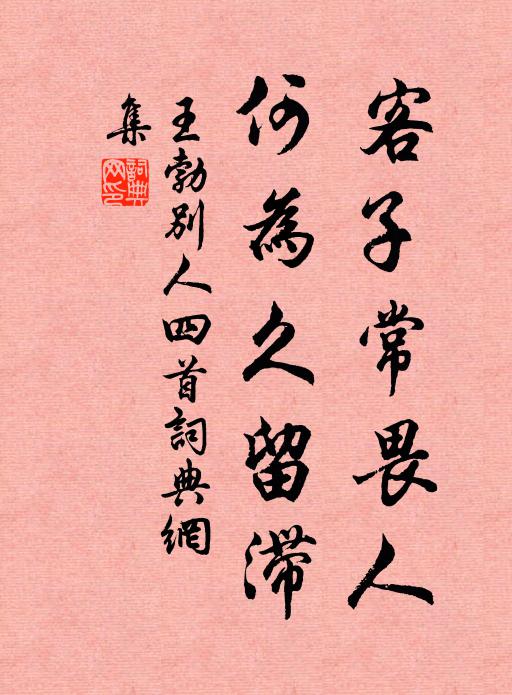 客子常畏人
何為久留滞
王勃別人四首詞典網
集
詞典網印